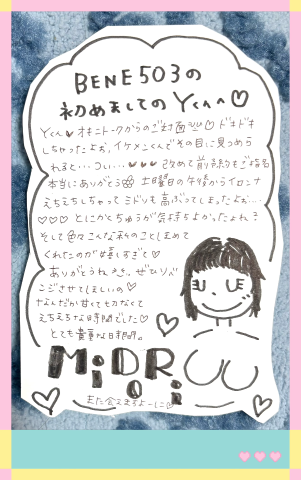 BENE503の
初めましてのYくんへ♡
Yくん♥オキニトークからのご対面♡ドキドキ
しちゃったよぉ、イケメンくんでその目に見つめら
れると…つい…♥♥♥改めて前予約もご指名
本当にありがとう 土曜日の午後からイロンナ
えちえちしちゃってミドリも高ぶってしまったよぉ…
♡♡♡とにかくちゅうが気持ちよかったよねぇ
そして こんな私のこと
くれたのが嬉しすぎて♡
ありがとうねぇ ぜひリベ
ンジさせてほしいの♡
なんだか甘くて切なくて
えちえちな時間でした♡
とても貴重な日時間。
MiDORi
また会えますよーに